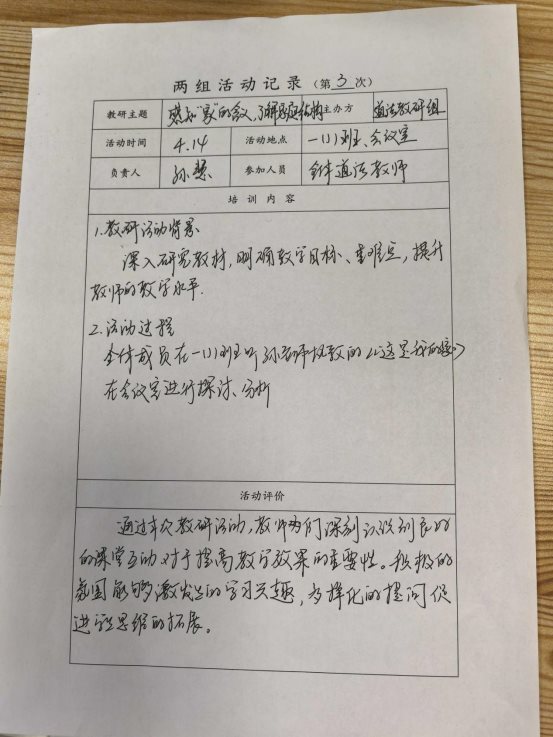 两组活动记录（第3次）
教研主题 感知“家”的含义,了解家庭结构 主办方 道法教研组
活动时间 4.14 活动地点 一(1)班、会议室
负责人 孙慧 参加人员 全体道法教师
培训内容
1.教研活动背景
深入研究教材,明确教学目标、重难点,提升
教师的教学水平.
2.活动过程
全体成员在一(1)班听孙老师执教的《这是我的家》
在会议室进行探讨、分析
活动评价
通过本次教研活动,教师们深刻认识到良好
的课堂互动对于提高教学效果的重要性。积极的
氛围能够激发生的学习兴趣,多样化的提问促
进学生思维的拓展。